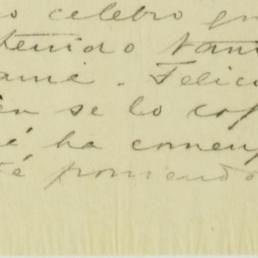 o celebro qu
tenido tan
ame. Felic
en se lo co
é ha comen
té poniendo